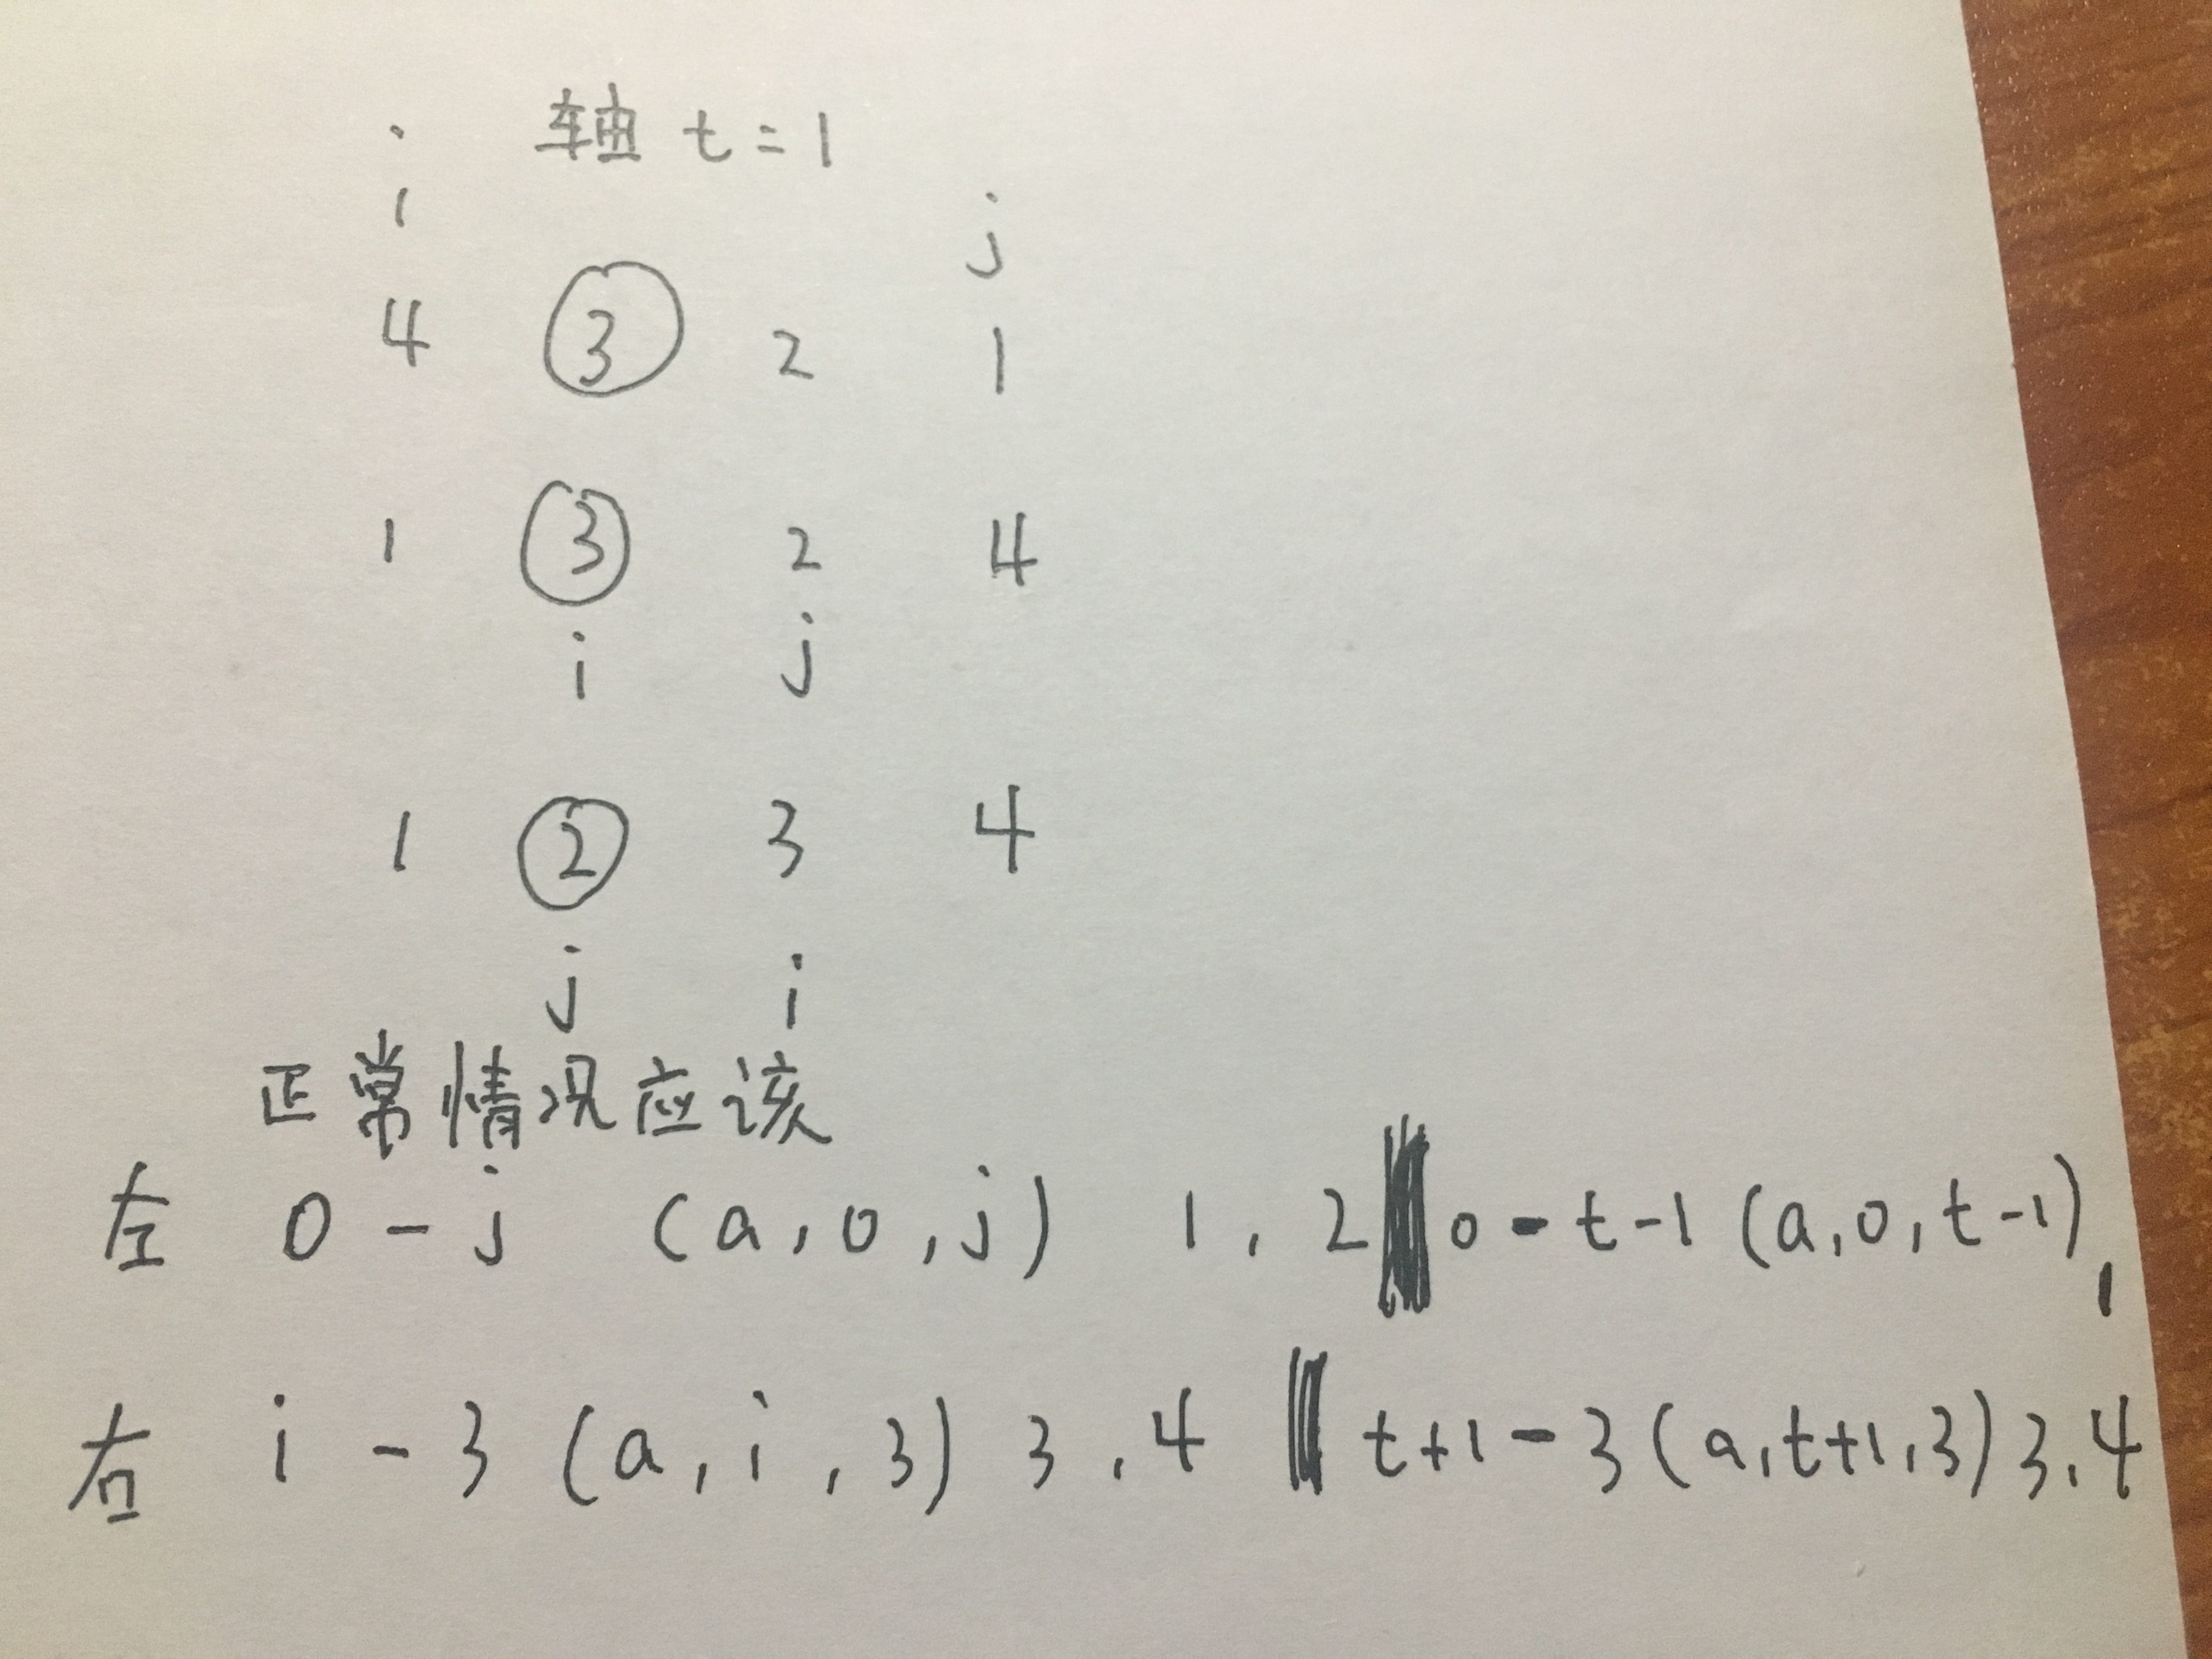 i 轴 t = 1 j
4 3 2 1
1 3 2 4
i j
1 2 3 4
j i
正常情况应该
左 0 - j (a, 0, j) 1, 2 0 - t-1 (a, 0, t-1), 1
右 i - 3 (a, i, 3) 3, 4 t+1 - 3 (a, t+1, 3) 3, 4